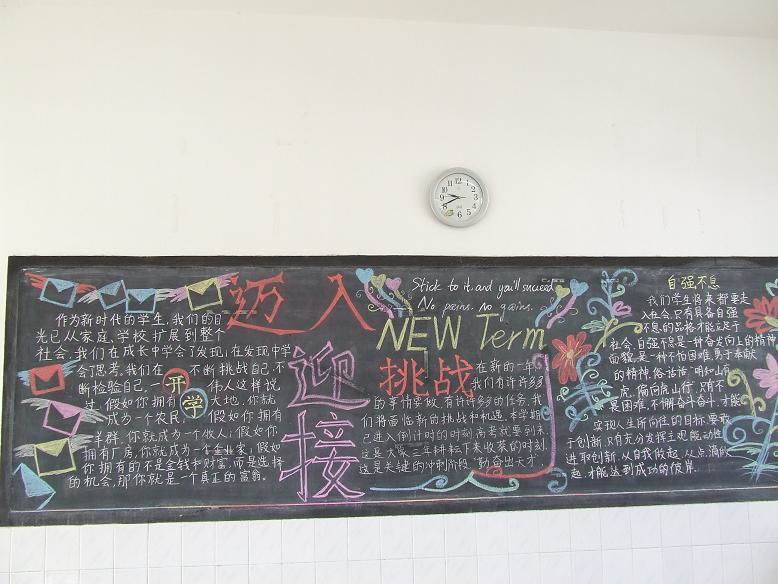 12
迈入
迎接
作为新时代的学生,我们的目
光已从家庭、学校扩展到整个
社会,我们在成长中学会了发现;在发现中学
会了思考。我们在 不断挑战自己,不
断检验自己,一 伟人这样说
过,假如你拥有 大地,你就
成为一个农民; 假如你拥有
羊群,你就成为一个牧人;假如你
拥有厂房,你就成为一个企业家;假如
你拥有的不是金钱和财富,而是选择
的机会,那你就是一个真正的富翁。
开
学
Stick to it, and you'll succeed
No pains, No gains.
NEW Term
挑战
在新的一年
我们有许许多多
的事情要做,有许许多多的任务,我
们将面临新的挑战和机遇,本学期
已进入倒计时的时刻,高考就要到来
这是大家三年耕耘下来收获的时刻
这是关键的冲刺阶段“勤奋出天才
自强不息
我们学生将来都要走
入社会,只有具备自强
不息的品格才能立足于
社会,自强不息是一种奋发向上的精神
面貌,是一种不怕困难,勇于奉献
的精神,俗话话“明知山有
虎,偏向虎山行”,只有不
畏困难,不懈奋斗奋斗,才能
实现人生所向往的目标,要敢
于创新,只有充分发挥主观能动性
进取创新,从自我做起,从点滴做
起,才能达到成功的彼岸。